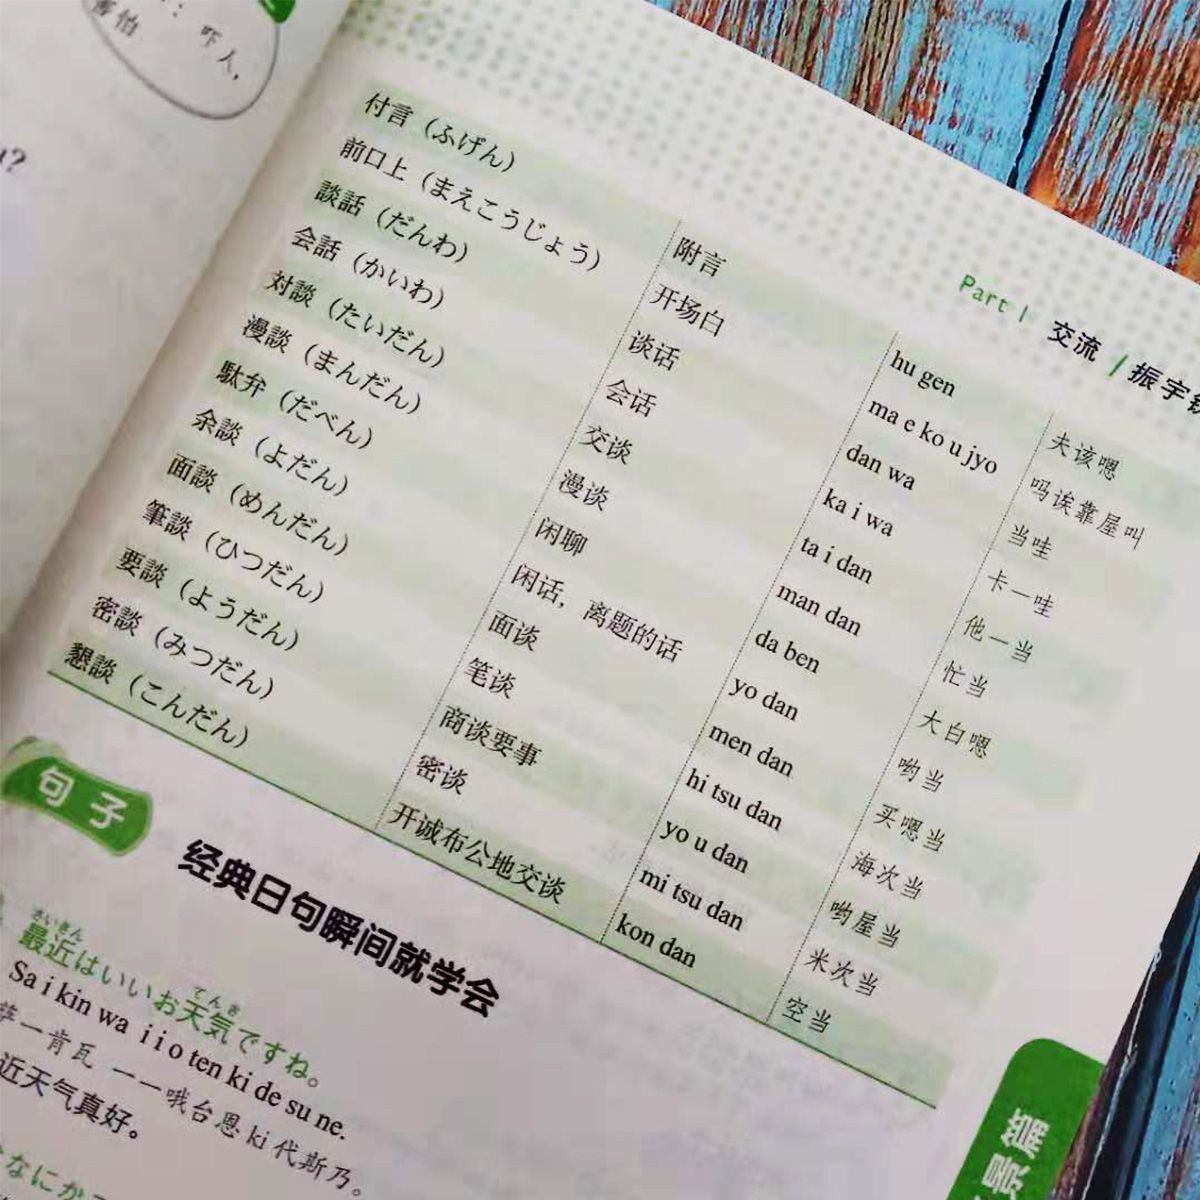 ：吓人，
害怕
Part 1 交流 / 振宇
付言（ふげん） 附言 hu gen 夫该嗯
前口上（まえこうじょう） 开场白 ma e ko u jyo 吗诶靠屋叫
談話（だんわ） 谈话 dan wa 当哇
会話（かいわ） 会话 ka i wa 卡一哇
対談（たいだん） 交谈 ta i dan 他一当
漫談（まんだん） 漫谈 man dan 忙当
駄弁（だべん） 闲聊 da ben 大白嗯
余談（よだん） 闲话，离题的话 yo dan 哟当
面談（めんだん） 面谈 men dan 买嗯当
筆談（ひつだん） 笔谈 hi tsu dan 海次当
要談（ようだん） 商谈要事 yo u dan 哟屋当
密談（みつだん） 密谈 mi tsu dan 米次当
懇談（こんだん） 开诚布公地交谈 kon dan 空当
句子
经典日句瞬间就学会
さいきん てんき
最近はいいお天気ですね。
Sa i kin wa i i o ten ki de su ne.
一肯瓦 一一哦台恩 ki 代斯乃。
近天气真好。
なにか
景篇